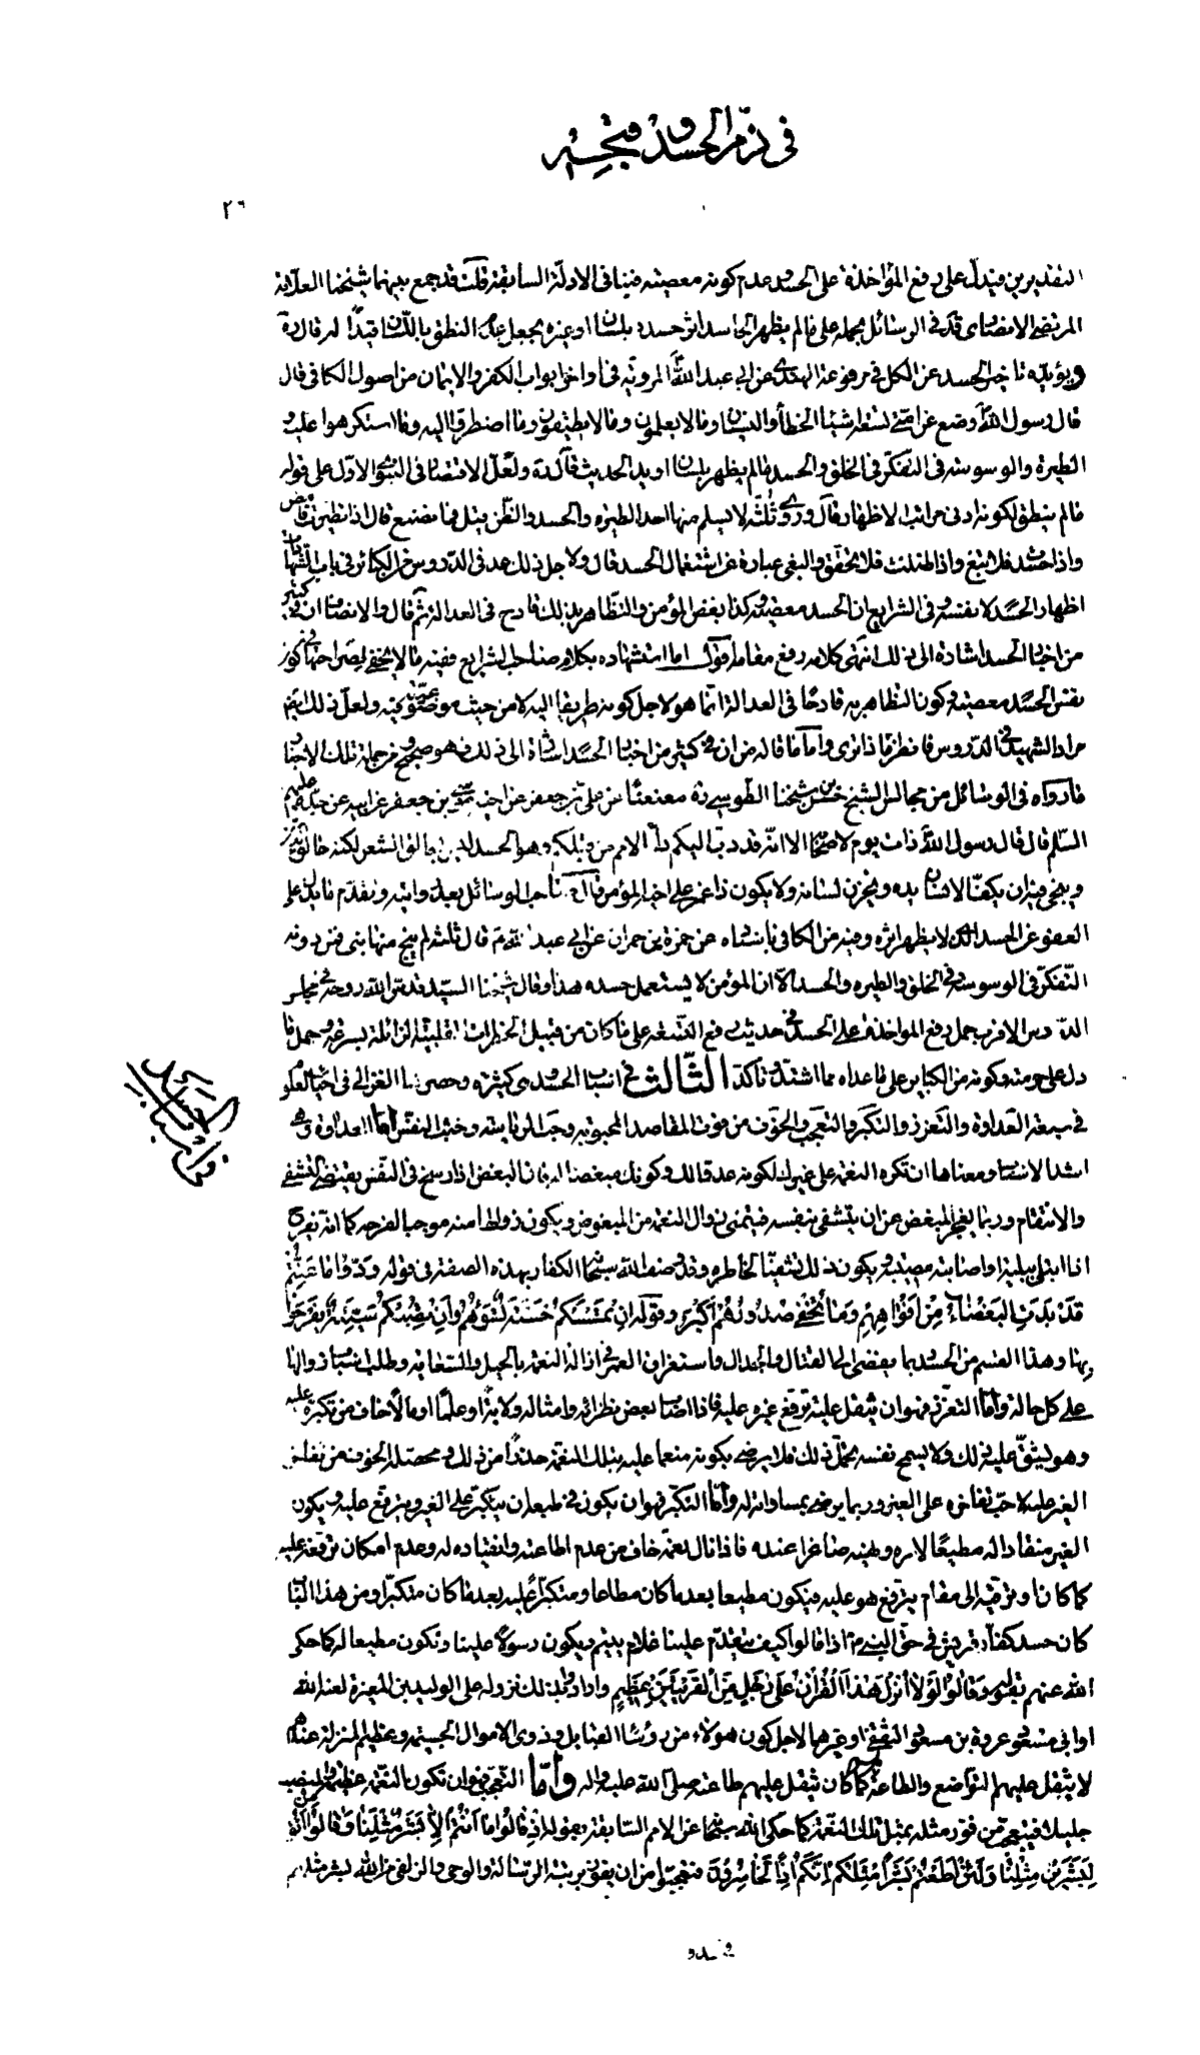 في ذم الحسد و قبحه
٢٦
التقديرين فيدل على رفع المؤاخذة على الحسد و عدم كونه معصية فينافي الادلة السابقة قلت قد جمع بينهما شيخنا العلامة
المرتضى الانصاري قده في الرسائل بحمله على ما لم يظهر الحاسد اثر حسده بلسان او غيره بجعل عدم النطق باللسان قيدا له قال ره
و يؤيده تاخير الحسد عن الكل في مرفوعة النهدي عن ابي عبد الله المروية في اواخر ابواب الكفر و الايمان من اصول الكافي قال
قال رسول الله وضع عن امتي تسعة اشياء الخطأ و النسيان و ما لا يعلمون و ما لا يطيقون و ما اضطروا اليه و ما استكرهوا عليه
الطيرة و الوسوسة في التفكر في الخلق و الحسد ما لم يظهر بلسان او يد الحديث قال قده و لعل الاقتصار في النبوي الاول على قوله
ما لم ينطق لكونه ادنى مراتب الاظهار قال و روي ثلثة لا يسلم منها احد الطيرة و الحسد و الظن قيل فما نصنع قال اذا تطيرت فامض
و اذا حسدت فلا تبغ و اذا ظننت فلا تحقق و البغي عبارة عن استعمال الحسد قال و لاجل ذلك عد في الدروس من الكبائر في باب الشهادات
اظهار الحسد لا نفسه و في الشرايع ان الحسد معصية و كذا بغض المؤمن و التظاهر بذلك قادح في العدالة ثم قال و الانصاف ان في كثير
من اخبار الحسد اشارة الى ذلك انتهى كلامه رفع مقامه اقول اما استشهاده بكلام صاحب الشرايع ففيه ما لا يخفى لصراحته في كون
نفس الحسد معصية و كون التظاهر به قادحا في العدالة انما هو لاجل كونه طريقا اليه لا من حيث موضوعيته و لعل ذلك ايضا
مراد الشهيد في الدروس فانظر ماذا ترى و اما ما قاله من ان في كثير من اخبار الحسد اشارة الى ذلك فهو صحيح و من جملة تلك الاخبار
ما رواه في الوسائل من مجالس الشيخ حسن بن شيخنا الطوسي ره معنعنا عن علي بن جعفر عن اخيه موسى بن جعفر عن ابيه عن جده عليهم
السلام قال قال رسول الله ذات يوم لاصحابه الا انه قد دب اليكم داء الامم من قبلكم و هو الحسد ليس بحالق الشعر لكنه حالق الدين
و ينجي منه ان يكف الانسان يده و يخزن لسانه و لا يكون ذا غمز على اخيه المؤمن قال صاحب الوسائل بعد روايته و تقدم ما يدل على
العفو عن الحسد الذي لا يظهر اثره و فيه من الكافي باسناده عن حمزة بن حمران عن ابي عبد الله قال ثلثة لم ينج منها نبي فمن دونه
التفكر في الوسوسة في الخلق و الطيرة و الحسد الا ان المؤمن لا يستعمل حسده هذا و قال شيخنا السيد قدس الله روحه في مجلس
الدرس الاقرب حمل رفع المواخذة على الحسد في حديث رفع التسعة على ما كان من قبيل الخطرات القلبية الزائلة بسرعة و حمل ما
دل على حرمته و كونه من الكباير على ما عداه مما اشتد و تاكد الثالث في اسباب الحسد و هي كثيرة و حصرها الغزالي في احياء العلوم
في سبعة العداوة و التعزز و التكبر و التعجب و الخوف من فوت المقاصد المحبوبة و حب الرياسة و خبث النفس اما العداوة و هي
اشد الاسباب و معناها ان تكره النعمة على غيرك لكونه عدوا لك و كونك مبغضا له فان البغض اذا رسخ في النفس يقتضي التشفي
و الانتقام و ربما يعجز المبغض عن ان يتشفى بنفسه فيتمنى زوال النعمة من المبغوض و يكون زوالها منه موجبا لفرحه كما انه يفرح
اذا ابتلي ببلية او اصابته مصيبة و يكون ذلك تشفيا لخاطره و قد وصف الله سبحانه الكفار بهذه الصفة في قوله وَدُّوا مَا عَنِتُّمْ
قَدْ بَدَتِ الْبَغْضَاءُ مِنْ اَفْوَاهِهِمْ وَمَا تُخْفِي صُدُورُهُمْ اَكْبَرُ و قوله اِنْ تَمْسَسْكُمْ حَسَنَةٌ تَسُؤْهُمْ وَاِنْ تُصِبْكُمْ سَيِّئَةٌ يَفْرَحُوا
بِهَا و هذا القسم من الحسد ربما يفضي الى القتال و الجدال و استغراق العمر في ازالة النعمة بالحيل و السعاية و طلب اسباب زوالها
على كل حالة و اما التعزز فهو ان يثقل عليه ترفع غيره عليه فاذا اصاب بعض نظرائه و امثاله ولاية او علما او مالا خاف من تكبره عليه
و هو يشق عليه ذلك و لا يسمح نفسه بتحمل ذلك فلا يرضى بكونه منعما عليه بتلك النعمة حذرا من ذلك و محصله الخوف من تفاخر
الغير عليه لا حب تفاخره على الغير و ربما يرضى بمساواته له و اما التكبر فهو ان يكون في طبعه ان يتكبر على الغير و يترفع عليه و يكون
الغير منقادا له مطيعا لامره و نهيه صاغرا عنده فاذا نال نعمة خاف من عدم اطاعته و انقياده له و عدم امكان ترفعه عليه
كما كان او ترقيه الى مقام يترفع هو عليه فيكون مطيعا بعد ما كان مطاعا و متكبرا عليه بعد ما كان متكبرا و من هذا الباب
كان حسد كفار قريش في حق النبي ص اذ قالوا كيف يتقدم علينا غلام يتيم و يكون رسولا علينا و نكون مطيعا له كما حكى
الله عنهم بقوله وَقَالُوا لَوْلَا اُنْزِلَ هَذَا الْقُرْآنُ عَلَى رَجُلٍ مِنَ الْقَرْيَتَيْنِ عَظِيمٍ و ارادوا بذلك نزوله على الوليد بن المغيرة لعنه الله
او ابي مسعود عروة بن مسعود الثقفي او غيرهما لاجل كون هؤلاء من رؤساء القبايل و ذوي الاموال الجسيمة و عظيم المنزلة عندهم
لا يثقل عليهم التواضع و الطاعة لهم كما كان يثقل عليهم طاعته صلى الله عليه و اله و اما التعجب فهو ان تكون النعمة عظيمة و المنصب
جليلا فيتعجب من فوز مثله بمثل تلك النعمة كما حكى الله سبحانه عن الامم السابقة بقوله اذ قَالُوا مَا اَنْتُمْ اِلَّا بَشَرٌ مِثْلُنَا وَقَالُوا اَنُؤْمِنُ
لِبَشَرَيْنِ مِثْلِنَا وَلَئِنْ اَطَعْتُمْ بَشَرًا مِثْلَكُمْ اِنَّكُمْ اِذًا لَخَاسِرُونَ فتعجبوا من ان يفوز برتبة الرسالة و الوحي و الزلفى من الله بشر مثلهم
في اسباب الحسد